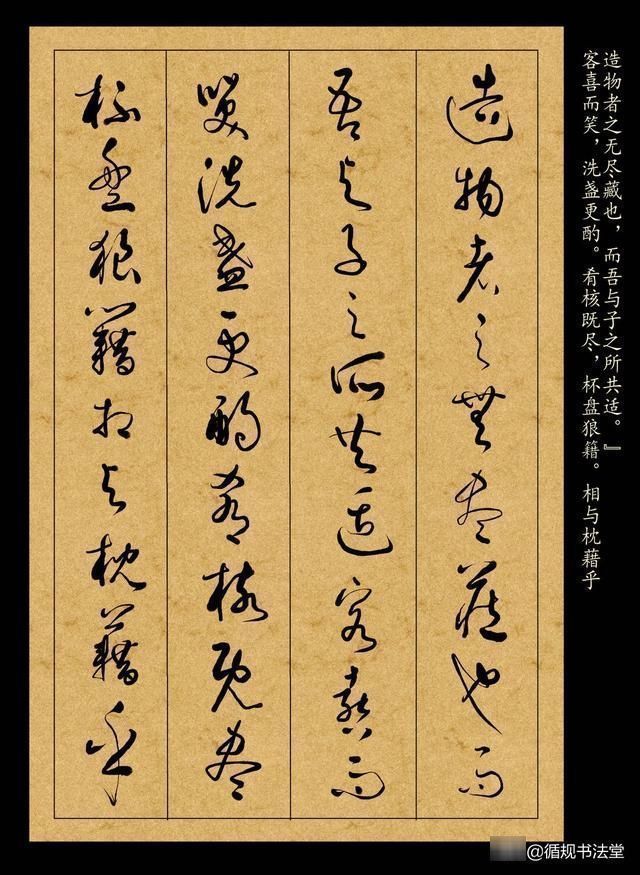 造物者之無盡藏也而
吾与子之所共适客喜而
笑洗盏更酌肴核既盡
杯盘狼籍相与枕藉乎
造物者之无尽藏也，而吾与子之所共适。』
客喜而笑，洗盏更酌。肴核既尽，杯盘狼籍。相与枕藉乎
@循规书法堂